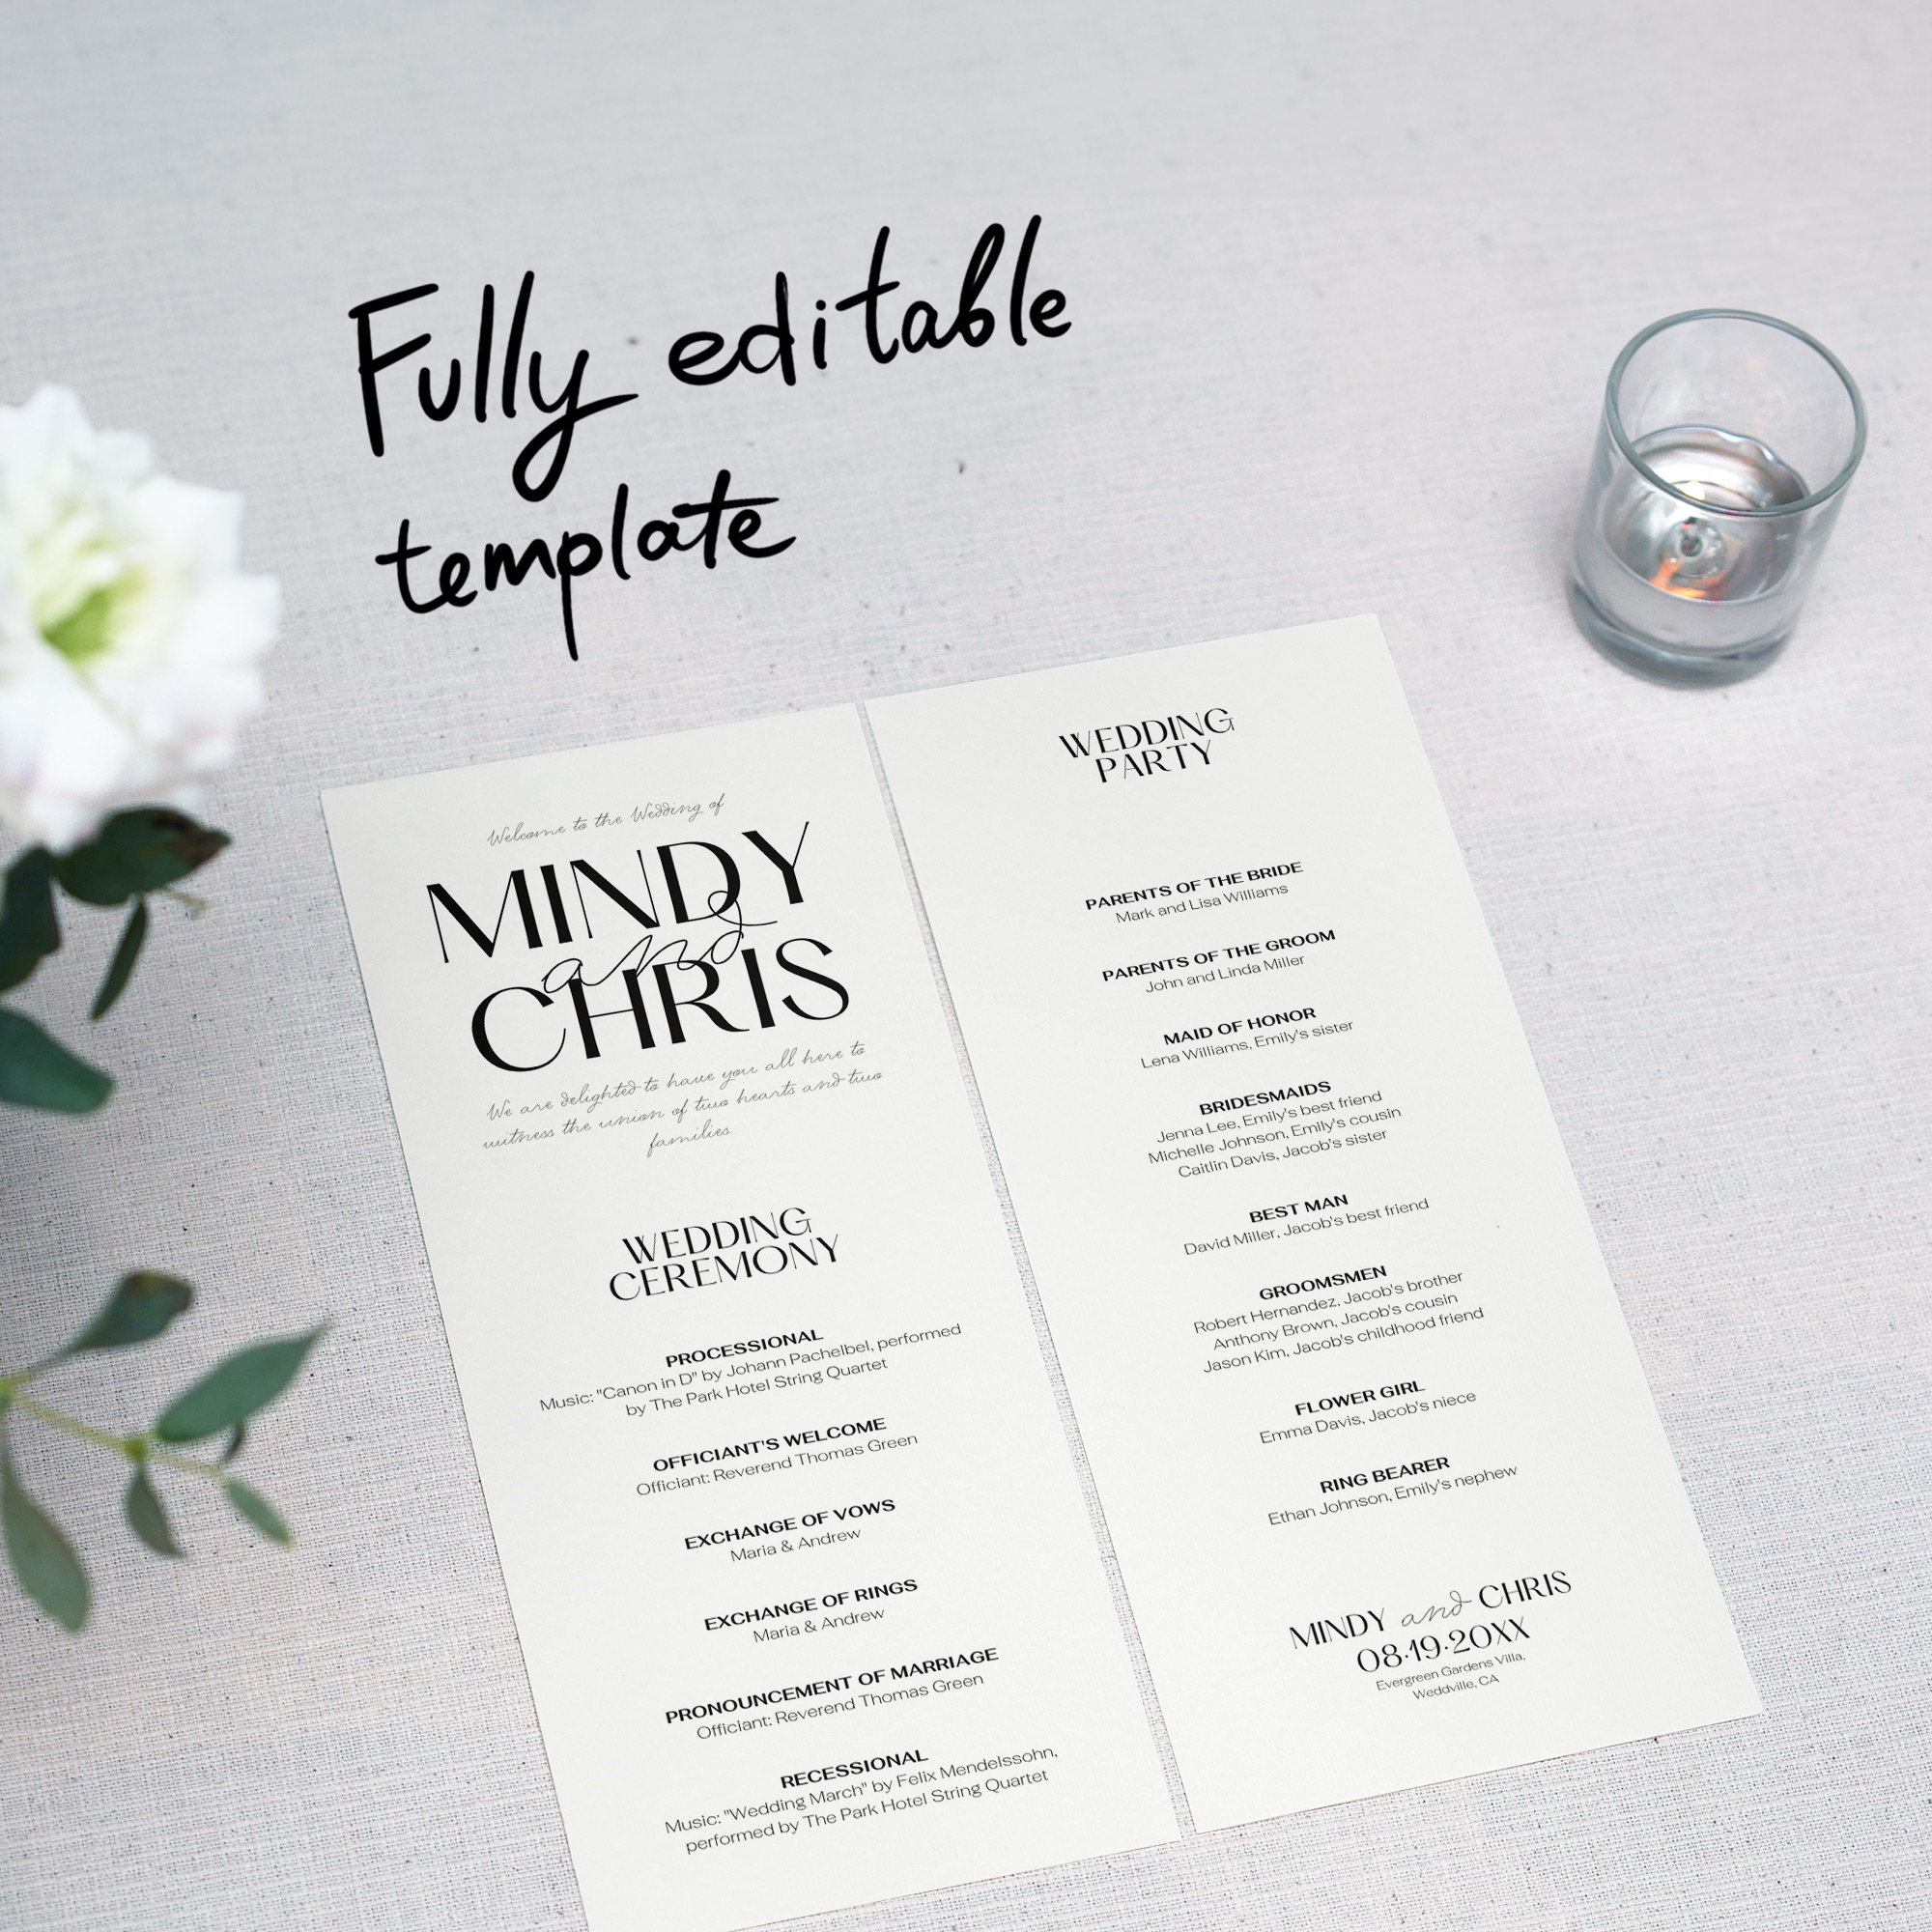 Fully editable
template
Welcome to the Wedding of
MINDY
and
CHRIS
We are delighted to have you all here to
witness the union of two hearts and two
families.
WEDDING
CEREMONY
PROCESSIONAL
Music: "Canon in D" by Johann Pachelbel, performed
by The Park Hotel String Quartet
OFFICIANT'S WELCOME
Officiant: Reverend Thomas Green
EXCHANGE OF VOWS
Maria & Andrew
EXCHANGE OF RINGS
Maria & Andrew
PRONOUNCEMENT OF MARRIAGE
Officiant: Reverend Thomas Green
RECESSIONAL
Music: "Wedding March" by Felix Mendelssohn,
performed by The Park Hotel String Quartet
WEDDING
PARTY
PARENTS OF THE BRIDE
Mark and Lisa Williams
PARENTS OF THE GROOM
John and Linda Miller
MAID OF HONOR
Lena Williams, Emily's sister
BRIDESMAIDS
Jenna Lee, Emily's best friend
Michelle Johnson, Emily's cousin
Caitlin Davis, Jacob's sister
BEST MAN
David Miller, Jacob's best friend
GROOMSMEN
Robert Hernandez, Jacob's brother
Anthony Brown, Jacob's cousin
Jason Kim, Jacob's childhood friend
FLOWER GIRL
Emma Davis, Jacob's niece
RING BEARER
Ethan Johnson, Emily's nephew
MINDY and CHRIS
08.19.20XX
Evergreen Gardens Villa,
Weddville, CA